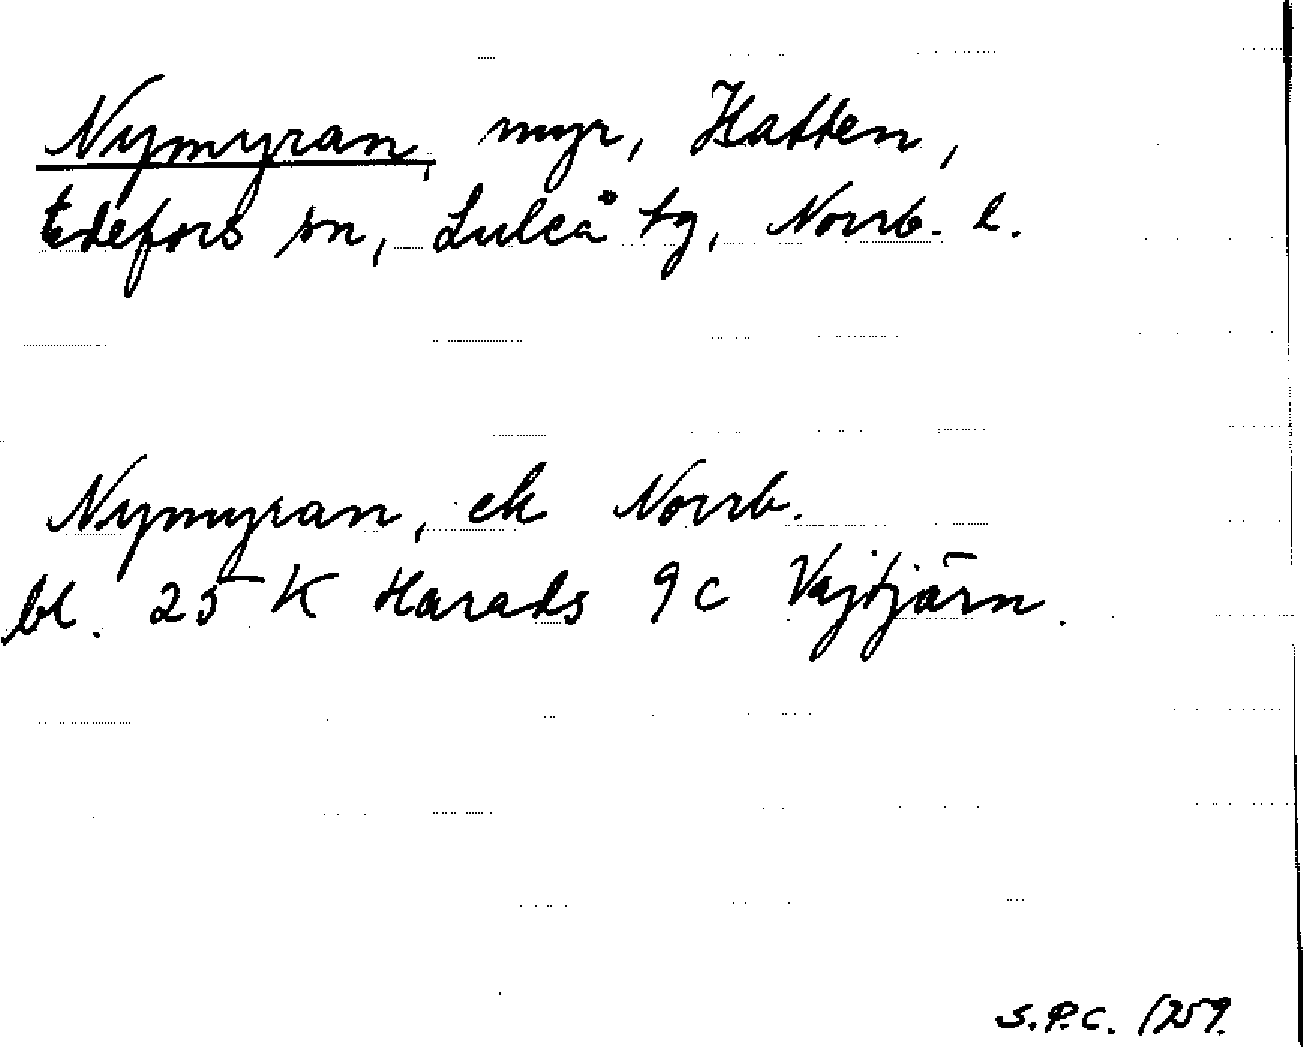 Nymyran, myr, Hatten,
Edefors sn, Luleå tg, Norrb. l.
Nymyran, ek Norrb.
bl. 25 K Harads 9 c Vajtjärn.
S.P.C. 1259.